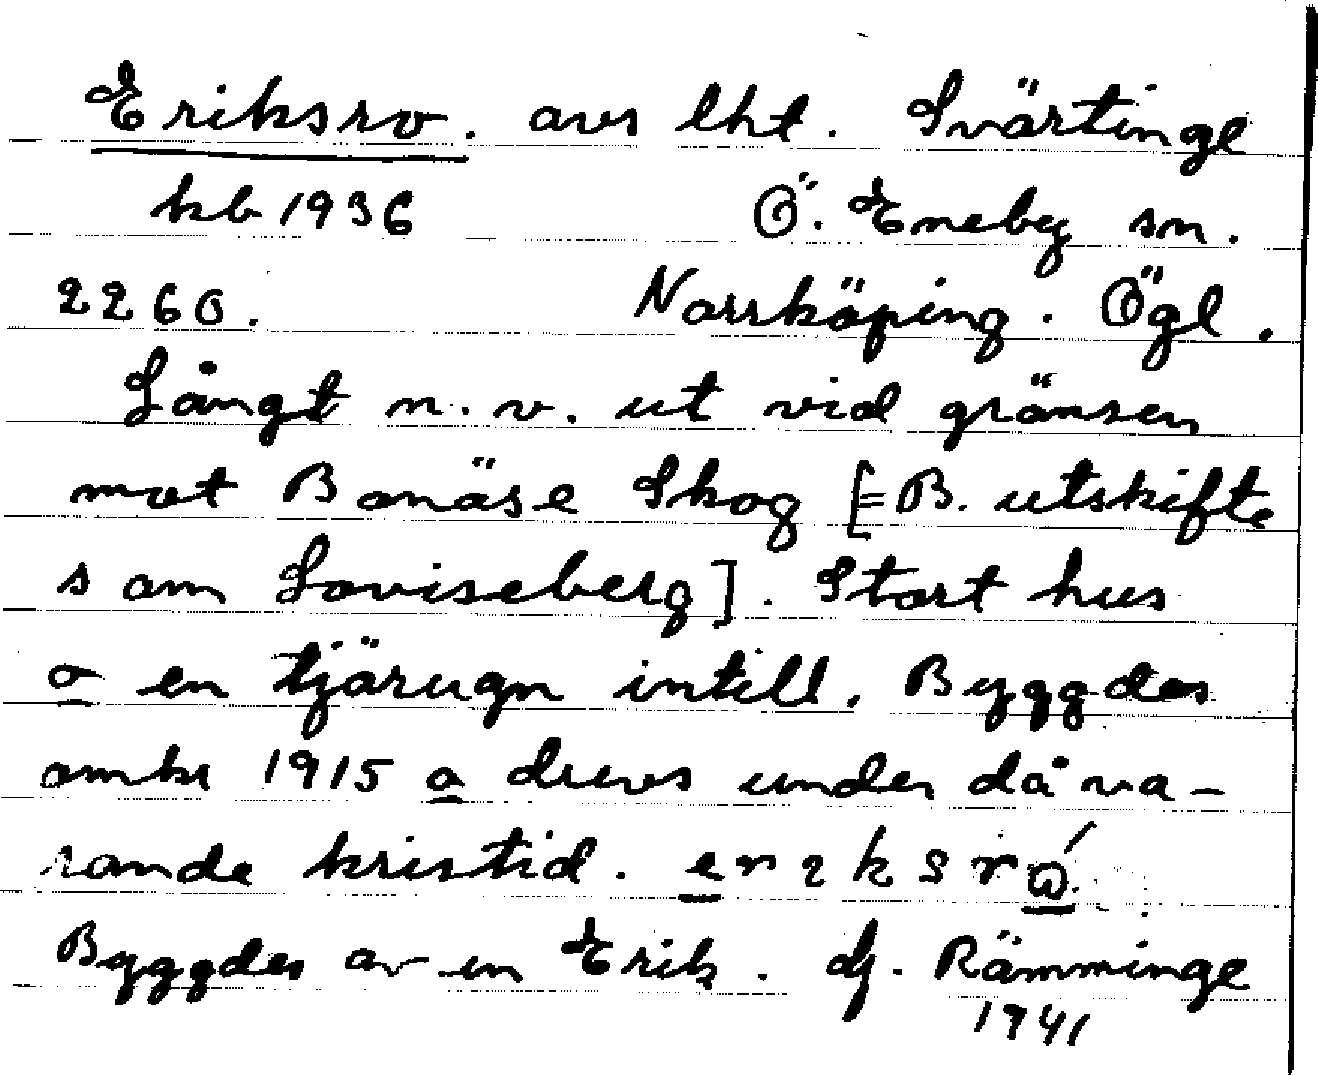 Eriksro. avs lht. Svärtinge
kb 1936 Ö. Eneby sn.
2260. Norrköping. Ögl.
Långt n.v. ut vid gränsen
mot Bonäse Skog [=B. utskifte
som Loviseberg]. Stort hus
o en tjärugn intill. Byggdes
omkr 1915 o drevs under dåva-
rande kristid.
Byggdes av en Erik. dj. Rämminge
1941